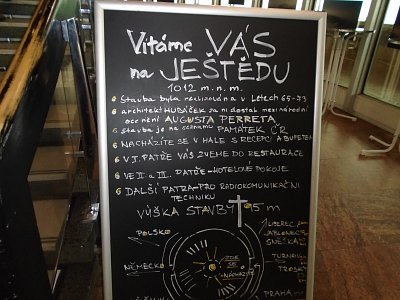 Vítáme VÁS
na JEŠTĚDU
1012 m.n.m.
Stavba byla realizována v Letech 65-73
architekt HUBÁČEK za ni dostal mezinárodní
ocenění AUGUSTA PERRETA
stavba je na seznamu PAMÁTEK ČR
NACHÁZÍTE SE V HALE S RECEPCÍ A BUFETEM
V I. PATŘE VÁS ZVEME DO RESTAURACE
VE II. a III. PATŘE - HOTELOVÉ POKOJE
DALŠÍ PATRA - PRO RADIOKOMUNIKAČNÍ
TECHNIKU
VÝŠKA STAVBY 95 m
POLSKO
LIBEREC
JABLONEC
SNĚŽKA
NĚMECKO
ZDE
SE
NACHÁZÍTE
TURNOV
TROSKY
PRAHA